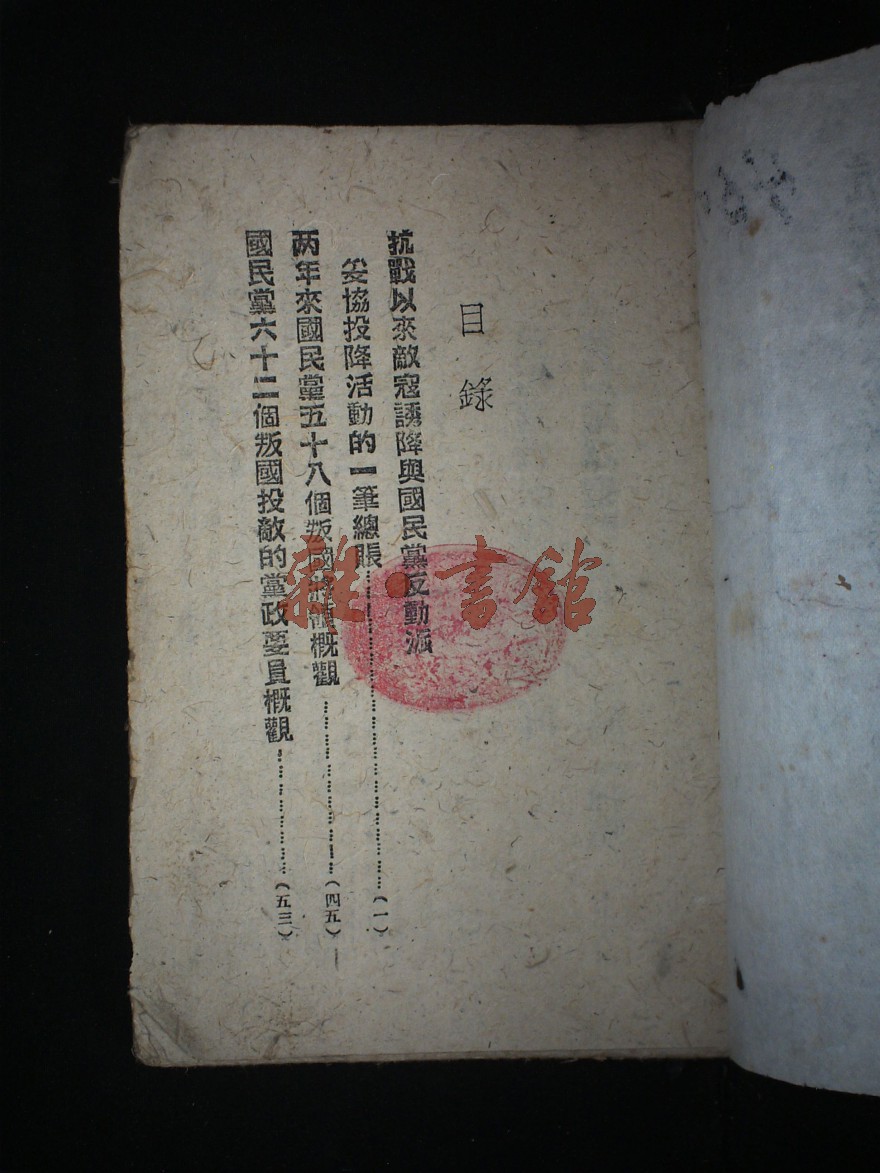 目錄
抗戰以來敵寇誘降與國民黨反動派
妥協投降活動的一筆總賬……(一)
两年來國民黨五十八個叛國將領概觀……(四五)
國民黨六十二個叛國投敵的黨政要員概觀……(五三)
雜·書館